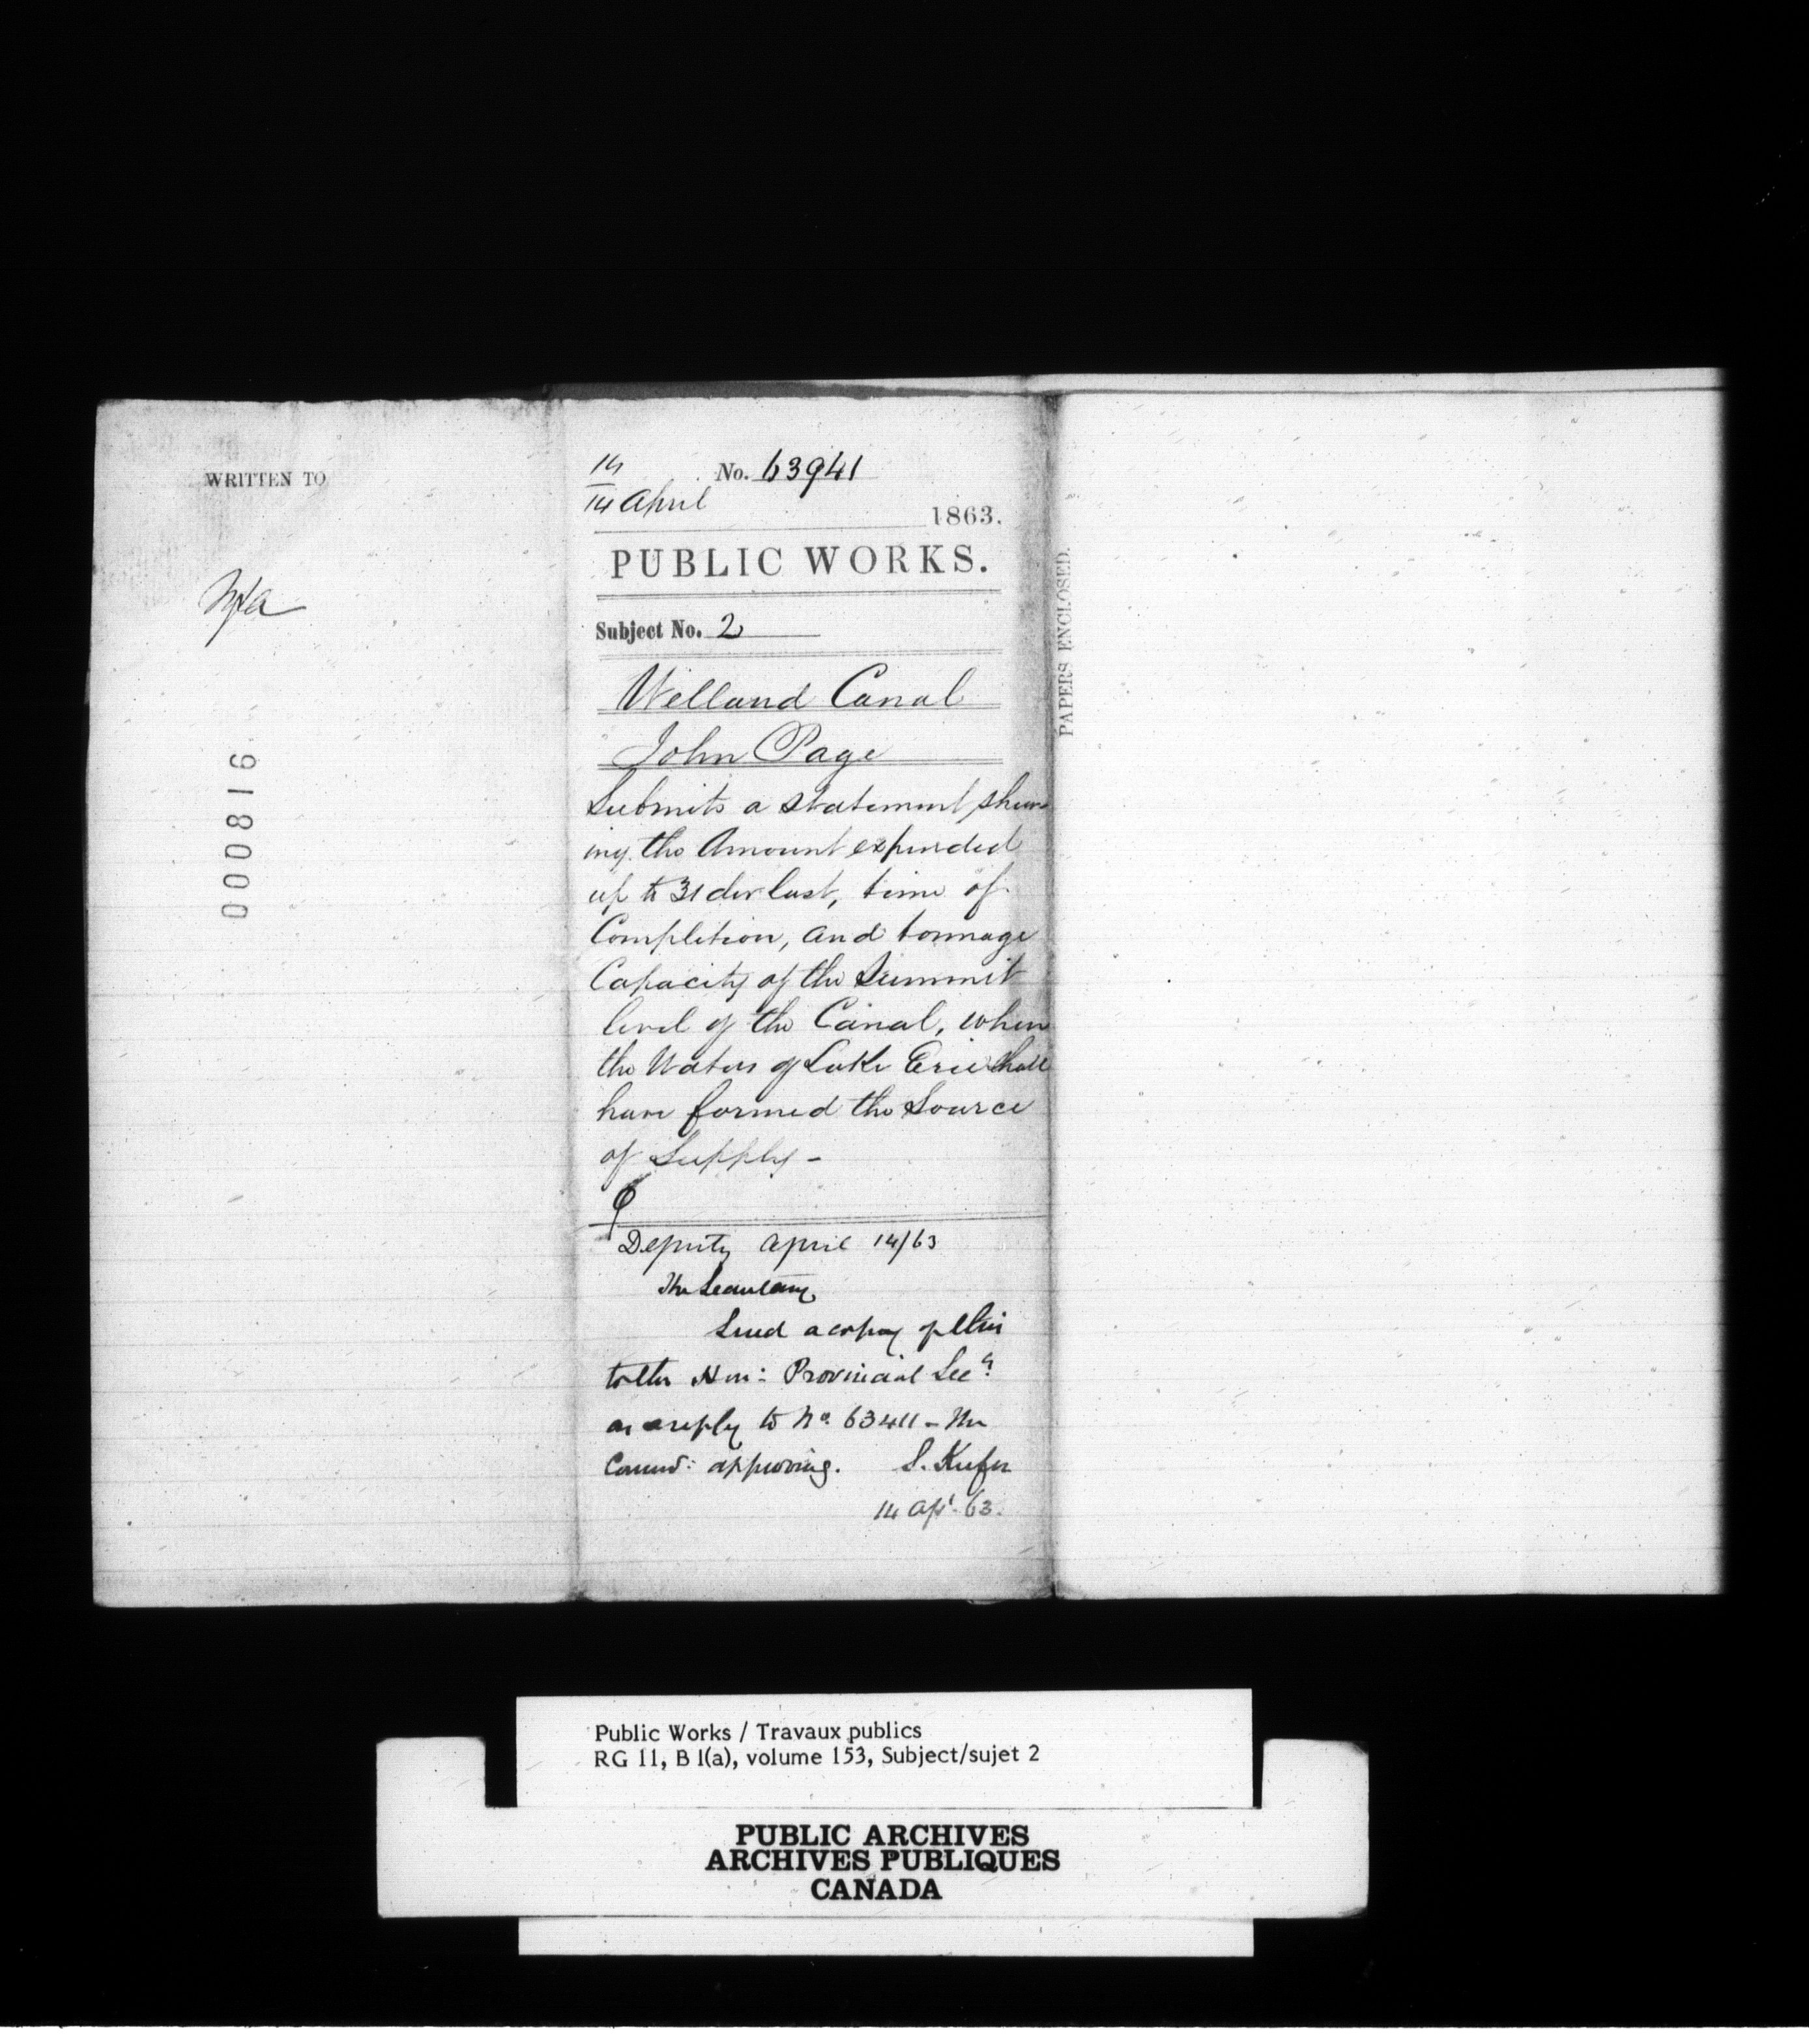 WRITTEN TO
000816
14
14 April
No. 63941
1863.
PUBLIC WORKS.
Subject No. 2
Welland Canal
John Page
Submits a statement shew-
ing the Amount expended
up to 31 dec last, time of
Completion, and tonnage
Capacity of the Summit
level of the Canal, when
the Waters of Lake Erie shall
have formed the Source
of Supply -
Deputy April 14/63
The Secretary
Send a copy of this
to the Hon: Provincial Secy
as a reply to No. 63411 - The
Commr: approving. S. Keefer
14 Apl. 63.
PAPERS ENCLOSED.
Public Works / Travaux publics
RG 11, B 1(a), volume 153, Subject/sujet 2
PUBLIC ARCHIVES
ARCHIVES PUBLIQUES
CANADA